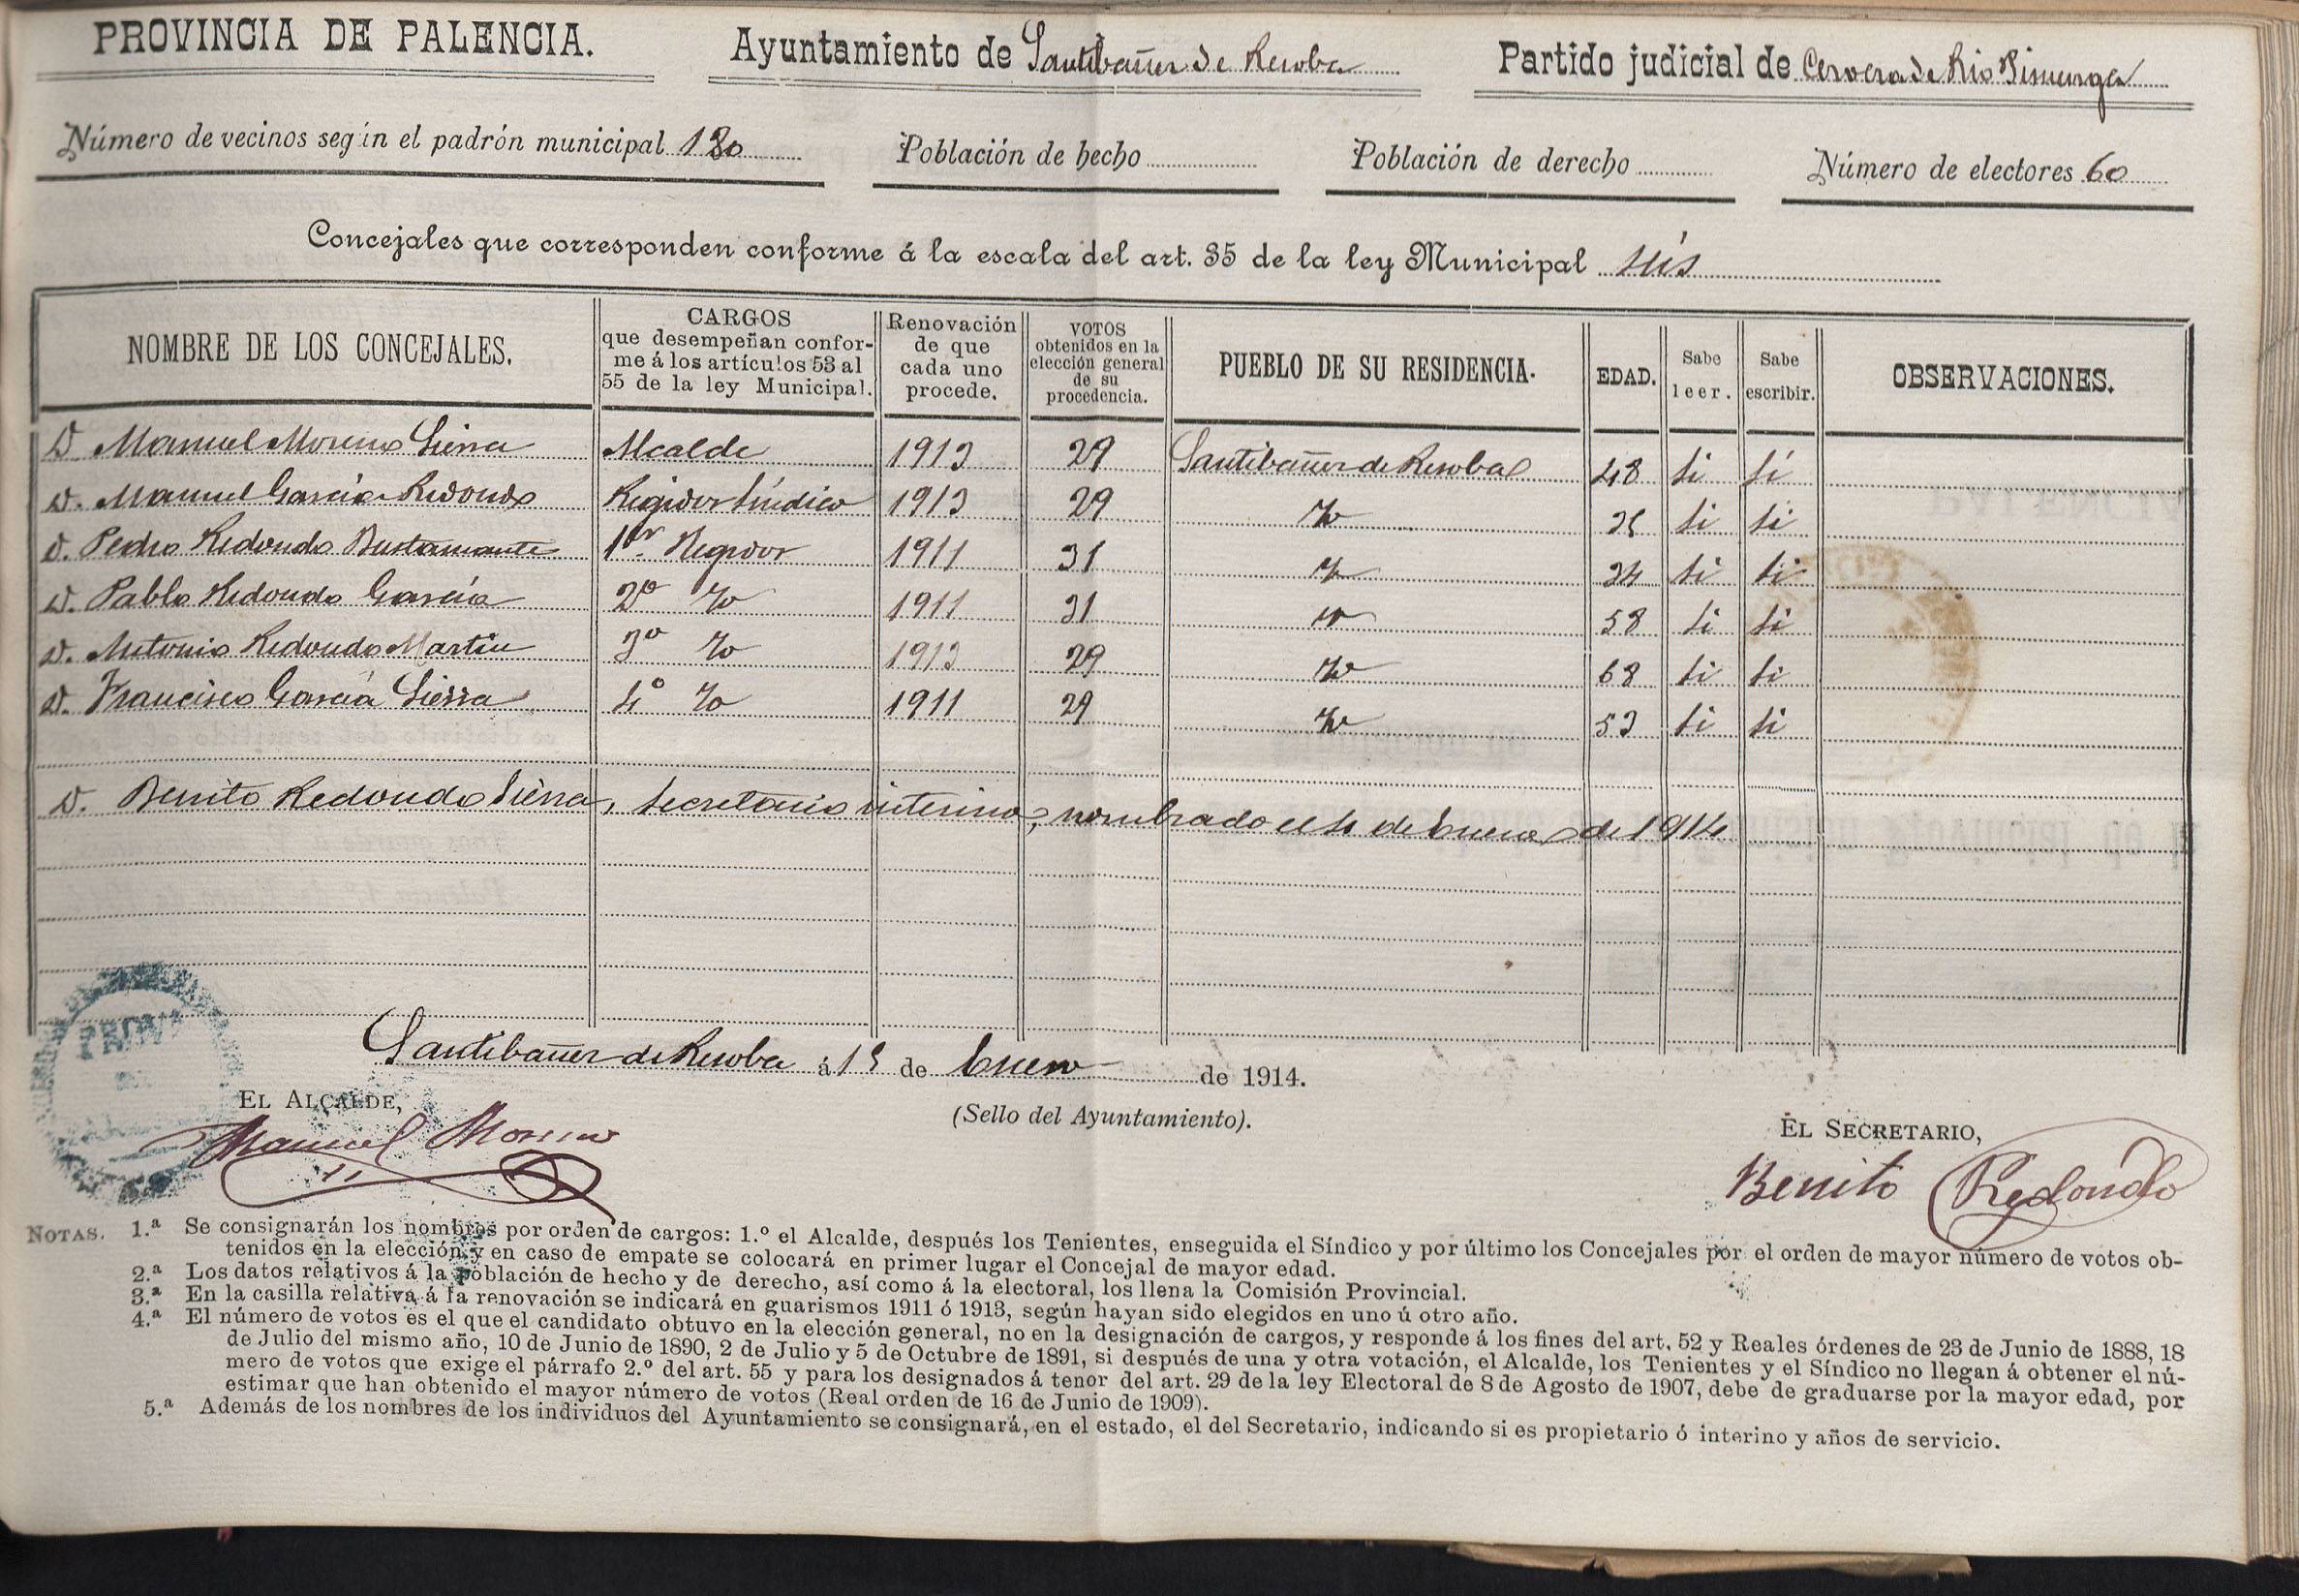 PROVINCIA DE PALENCIA. Ayuntamiento de Santibañez de Resoba Partido judicial de Cervera de Rio Pisuerga
Número de vecinos según el padrón municipal 180 Población de hecho Población de derecho Número de electores 60
Concejales que corresponden conforme á la escala del art. 35 de la ley Municipal seis
NOMBRE DE LOS CONCEJALES.
CARGOS
que desempeñan confor-
me á los artículos 53 al
55 de la ley Municipal.
Renovación
de que
cada uno
procede.
VOTOS
obtenidos en la
elección general
de su
procedencia.
PUEBLO DE SU RESIDENCIA.
EDAD.
Sabe
leer.
Sabe
escribir.
OBSERVACIONES.
D Manuel Moreno Sierra Alcalde 1913 29 Santibañez de Resoba 48 Si Sí
D. Manuel García Redondo Regidor Síndico 1913 29 Yd Si Si
D. Pedro Redondo Bustamante 1er Regidor 1911 31 Yd 34 Si Si
D. Pablo Redondo García 2º Yd 1911 31 Yd 58 Si Si
D. Antonio Redondo Martin 3º Yd 1913 29 Yd 68 Si Si
D. Francisco García Sierra 4º Yd 1911 29 Yd 53 Si Si
D. Benito Redondo Sierra, Secretario interino, nombrado el 4 de Enero de 1914
Santibañez de Resoba á 15 de Enero de 1914.
EL ALCALDE,
(Sello del Ayuntamiento).
EL SECRETARIO,
Manuel Moreno
Benito Redondo
NOTAS. 1.ª Se consignarán los nombres por orden de cargos: 1.º el Alcalde, después los Tenientes, enseguida el Síndico y por último los Concejales por el orden de mayor número de votos ob-
tenidos en la elección y en caso de empate se colocará en primer lugar el Concejal de mayor edad.
2.ª Los datos relativos á la población de hecho y de derecho, así como á la electoral, los llena la Comisión Provincial.
3.ª En la casilla relativa á la renovación se indicará en guarismos 1911 ó 1913, según hayan sido elegidos en uno ú otro año.
4.ª El número de votos es el que el candidato obtuvo en la elección general, no en la designación de cargos, y responde á los fines del art. 52 y Reales órdenes de 23 de Junio de 1888, 18
de Julio del mismo año, 10 de Junio de 1890, 2 de Julio y 5 de Octubre de 1891, si después de una y otra votación, el Alcalde, los Tenientes y el Síndico no llegan á obtener el nú-
mero de votos que exige el párrafo 2.º del art. 55 y para los designados á tenor del art. 29 de la ley Electoral de 8 de Agosto de 1907, debe de graduarse por la mayor edad, por
estimar que han obtenido el mayor número de votos (Real orden de 16 de Junio de 1909).
5.ª Además de los nombres de los individuos del Ayuntamiento se consignará, en el estado, el del Secretario, indicando si es propietario ó interino y años de servicio.